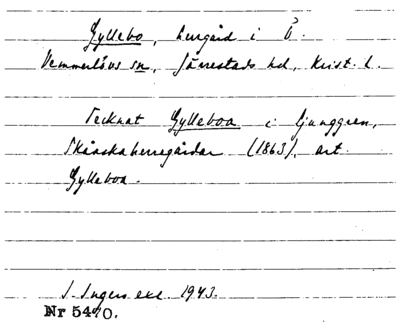 Gyllebo, herrgård i Ö.
Vemmerlövs sn, Järrestads hd, Krist. l.
Tecknat Gylleboa i Ljunggren,
Skånska herregårdar (1863), art.
Gylleboa.
I. Ingers exc. 1943.
Nr 5470.